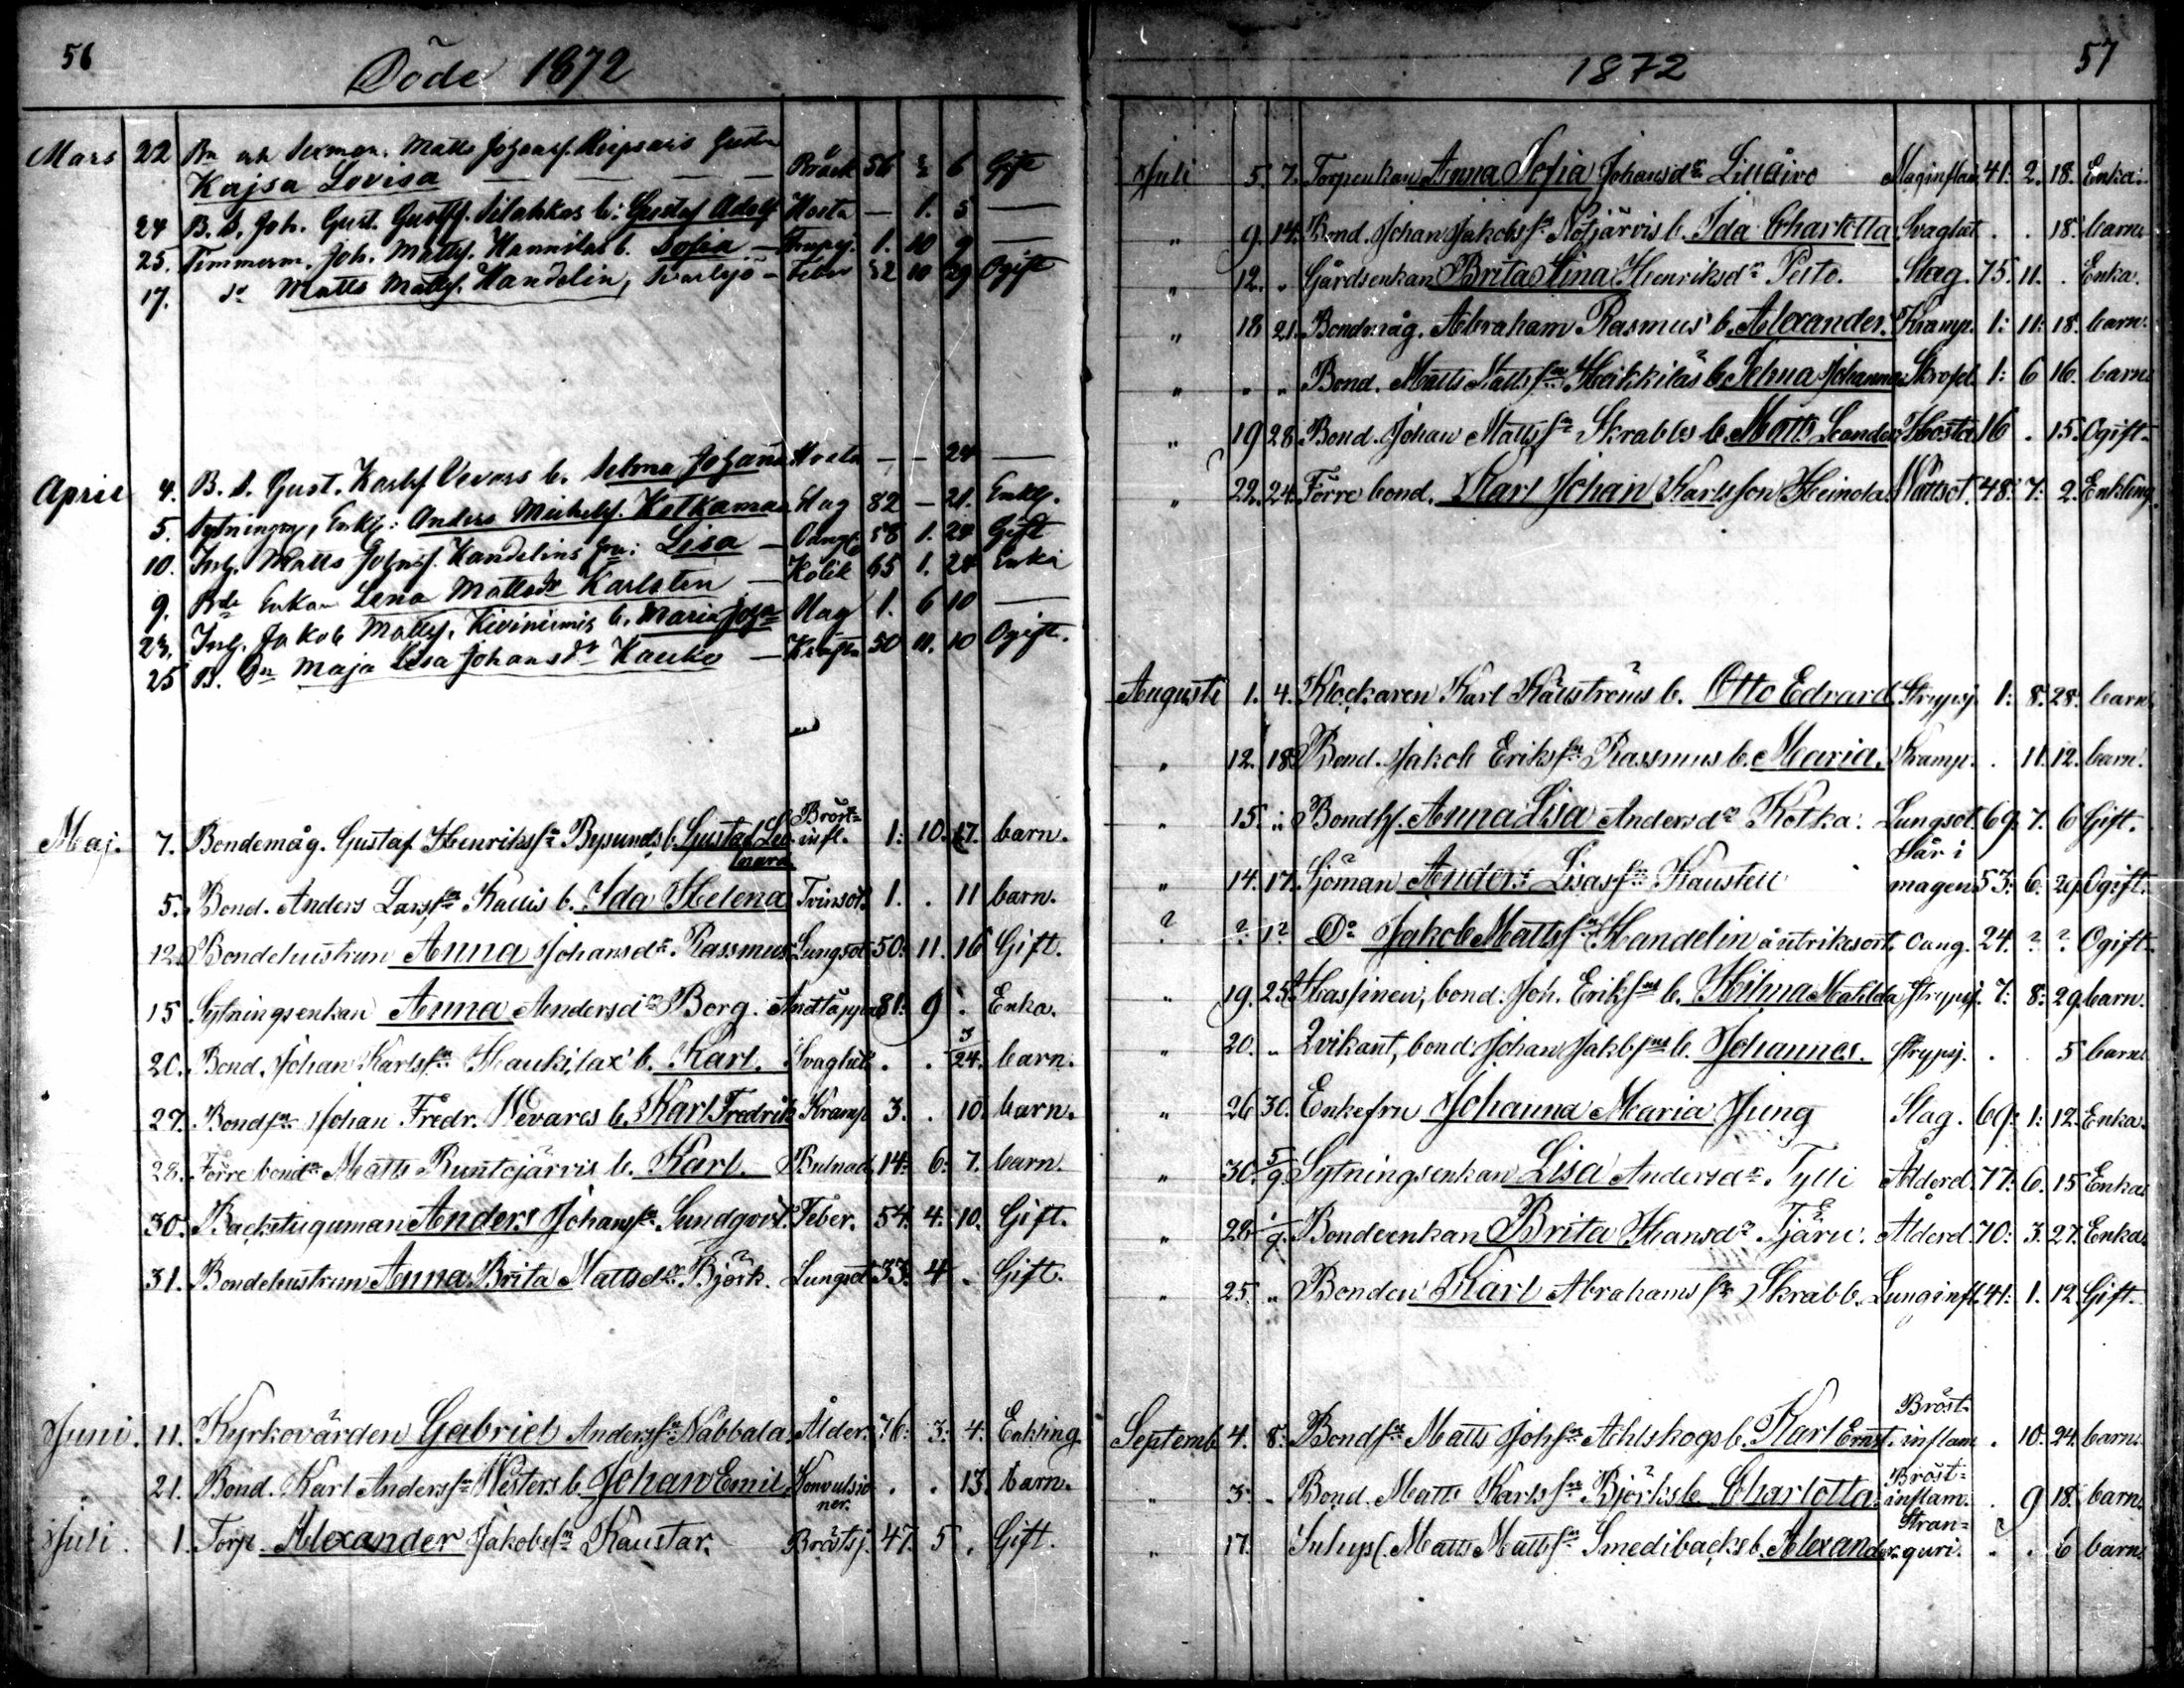 56
Döde 1872
Mars 22 Bn och Sexman. Matts Johansf. hustru Bräck 56 2 6 Gift
Kajsa Lovisa — — — —
24 B. S. Joh. Gust. Gustfs. b: Gustaf Adolf Hosta — 1. 5 —
25. Timmerm. Joh. Mattsf. Hannilas b. Sofia — Strupsj. 1. 10 9 —
17. do Matts Mattsf. Handelin, — Feber 32 10 29 Ogift
April 4. B. S. Gust. Karlsf Vevars b. Selma Johana Hosta — — 24 —
5. Sytningm, Enkl: Anders Michelsf. Kotkamaa Slag 82 — 21. Enkl.
10. Inh. Matts Johansf. Handelins hu: Lisa — 58 1. 24 Gift
9. Bde Enkan Lena Mattsdr Karlsten — Kolik 65 1. 24 Enka
23. Inh. Jakob Mattsf. Kiviniemis b. Maria Joha Slag 1. 6 10 —
25 B. Dr Maja Lisa Johansdr Kauko — Kräfta 50 11. 10 Ogift.
Maj. 7. Bondemåg. Gustaf Henriksfn Bysunds b. Gustaf Leo- Bröst= infl. 1: 10. 17. barn.
nard
5. Bond. Anders Larsfn Kauis b. Ida Helena Tvinsot 1. . 11 barn.
12. Bondehustrun Anna Johansdr. Rassmus Lungsot 50: 11. 16 Gift.
15 Sytningsenkan Anna Andersdr Borg. Andtäppa 81: 9 . Enka.
20. Bond. Johan Karlsfn Haukilax b. Karl. Svaghet . . 3/24. barn.
27. Bondfn Johan Fredr. Wevares b. Karl Fredrik Kramp 3. . 10. barn.
28. Förre bondn Matts Runtojärvis b. Karl. Bulnad 14: 6: 7. barn.
30. Backstuguman Anders Johansfn Sundqvist. Feber. 54. 4. 10. Gift.
31. Bondehustrun Anna Brita Mattsdr. Björk. Lungsot 33. 4 . Gift.
Juni. 11. Kyrkovärden Gabriel Andersfn Nabbala. Ålder. 76: 3: 4. Enkling
21. Bond. Karl Andersfn Westers b. Johan Emil. Konvulsio . . 13. barn.
ner.
Juli. 1. Torp. Alexander Jakobsfn Kaustar. Bröstsj. 47. 5 . Gift.
57
1872
Juli 5. 7. Torpenkan Anna Sofia Johansdr Lillåivo Maginflam 41: 2. 18. Enka.
„ 9. 14. Bond. Johan Jakobsfn Rötjärvis b. Ida Charlotta Svaghet . . 18. barn
„ 12. „ Gårdsenkan Brita Stina Henriksdr Peito. Slag. 75. 11. . Enka.
„ 18 21. Bondmåg. Abraham Rasmus b. Alexander. Kramp. 1: 11: 18. barn.
„ „ „ Bond. Matts Mattsfn Heikkiläs b. Selma Johanna Skrofel. 1: 6 16. barn
„ 19 28. Bond. Johan Mattsfn Skrabbs b. Matts Leander Hosta 16 . 15. Ogift.
„ 22. 24. Förre bond. Karl Johan Karlsson Heinola. 48: 7: 2. Enkling
Augusti 1. 4. Klockaren Karl Källströms b. Otto Edvard Strypsj. 1: 8: 28. barn
„ 12. 18 Bond. Jakob Eriksfn Rassmus b. Maria. Kramp. . 11. 12. barn.
„ 15. „ Bondh. Anna Lisa Andersdr Kotka. Lungsot. 69. 7. 6 Gift.
„ 14. 17. Sjöman Anders Lisasfn Kausten Sår i magen 53: 6. 29. Ogift.
? ? 1? Do Jakob Mattsfn Handelin å utrikesort. oang. 24. ? ? Ogift.
„ 19. 25. Hassinen, bond. Joh. Eriksfns b. Hilma Matilda Strypsj. 7: 8: 29. barn.
„ 20. „ Qvikant, bond. Johan Jakbsfns b. Johannes. Strypsj. . . 5 barn
„ 26 30. Enkefru Johanna Maria Jung Slag. 69: 1: 12. Enka.
„ 30. 5/9 Sytningsenkan Lisa Andersdr. Tylli Ålderd. 77: 6. 15 Enka
„ 28 1/9. Bondeenkan Brita Hansdr Tjäru. Ålderd. 70: 3. 27. Enka
„ 25. „ Bonden Karl Abrahamsfn Skrabb. Lunginfl. 41: 1. 12. Gift.
Septemb 4. 8. Bondfn Matts Johsfn Ahlskogs b. Karl Ernst. Bröst- inflam . 10: 24. barn.
„ 3. „ Bond. Matts Karlsfn Björks b. Charlotta Bröst= inflam. . 9 18. barn
„ 17. Inhys. Matts Mattsfn Smedibacks b. Alexander. Stran= guri. . . 6 barn